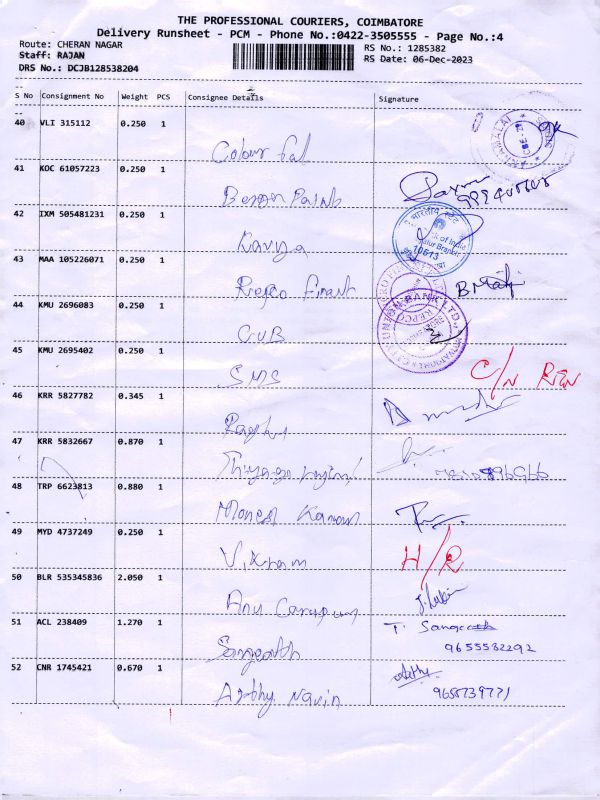 THE PROFESSIONAL COURIERS, COIMBATORE
Delivery Runsheet - PCM - Phone No.:0422-3505555 - Page No.:4
Route: CHERAN NAGAR
RS No.: 1285382
Staff: RAJAN
RS Date: 06-Dec-2023
DRS No.: DCJB128538204
S No Consignment No Weight PCS Consignee Details Signature
40 VLI 315112 0.250 1
Colour
41 KOC 61057223 0.250 1
Berger Paints
42 IXM 505481231 0.250 1
Kavya
43 MAA 105226071 0.250 1
Repco
44 KMU 2696083 0.250 1
CUB
45 KMU 2695402 0.250 1
SMS C/N
46 KRR 5827782 0.345 1
Raghu
47 KRR 5832667 0.870 1
48 TRP 6623813 0.880 1
49 MYD 4737249 0.250 1
Vikram H/R
50 BLR 535345836 2.050 1
Anu
51 ACL 238409 1.270 1 T. Sangeeth
Sangeeth 9655532292
52 CNR 1745421 0.670 1 Arthy
Arthy Navin